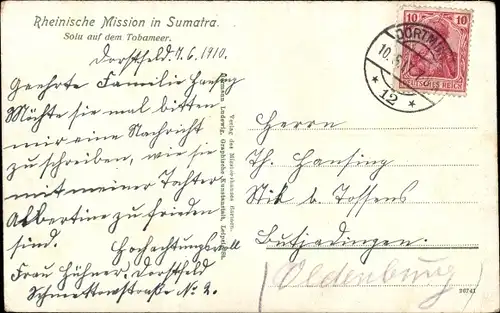 Rheinische Mission in Sumatra.
Solu auf dem Tobameer.
Dorstfeld. 7.6.1910.
Geehrte Familie Hansing
Möchte sie mal bitten
mir eine Nachricht
zu schreiben, wie sie
mit meiner Tahter
Albertine zu frieden
sind.
Hochachtungsvoll
Frau Hühner, Dorstfeld
Schmettowstraße No 2.
Verlag des Missionshauses Barmen.
Graphische Kunstanstalt, Leipzig
10
10
DEUTSCHES REICH
DORTMUND
10.
* 12 *
Herrn
Th. Hansing
Stik b Tossens
Butjadingen
(Oldenburg)
26741